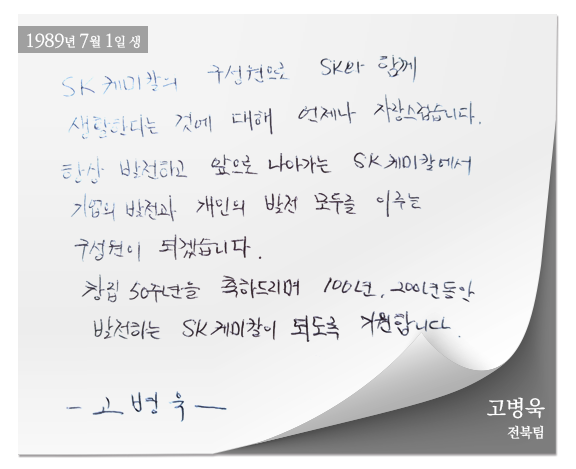 1989년 7월 1일 생
SK케미칼의 구성원으로 SK와 함께
생활한다는 것에 대해 언제나 자랑스럽습니다.
항상 발전하고 앞으로 나아가는 SK케미칼에서
기업의 발전과 개인의 발전 모두를 이루는
구성원이 되겠습니다.
창립 50주년을 축하드리며 100년, 200년동안
발전하는 SK케미칼이 되도록 기원합니다.
- 고병욱 -
고병욱
전북팀